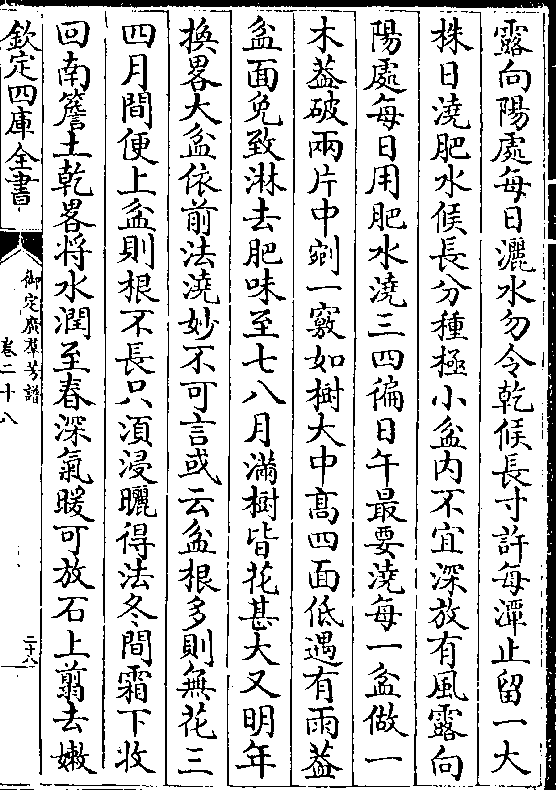 露向陽處每日灑水勿令乾候長寸許每潭止留一大
株日澆肥水候長分種極小盆内不宜深放有風露向
陽處每日用肥水澆三四徧日午最要澆每一盆做一
木葢破兩片中剜一竅如樹大中髙四面低遇有雨葢
盆面免致淋去肥味至七八月滿樹皆花甚大又明年
換畧大盆依前法澆妙不可言或云盆根多則無花三
四月間便上盆則根不長只湏浸曬得法冬間霜下收
回南簷土乾畧將水潤至春深氣暖可放石上翦去嫩
欽定四庫全書
御定廣羣芳譜
卷二十八
二十八